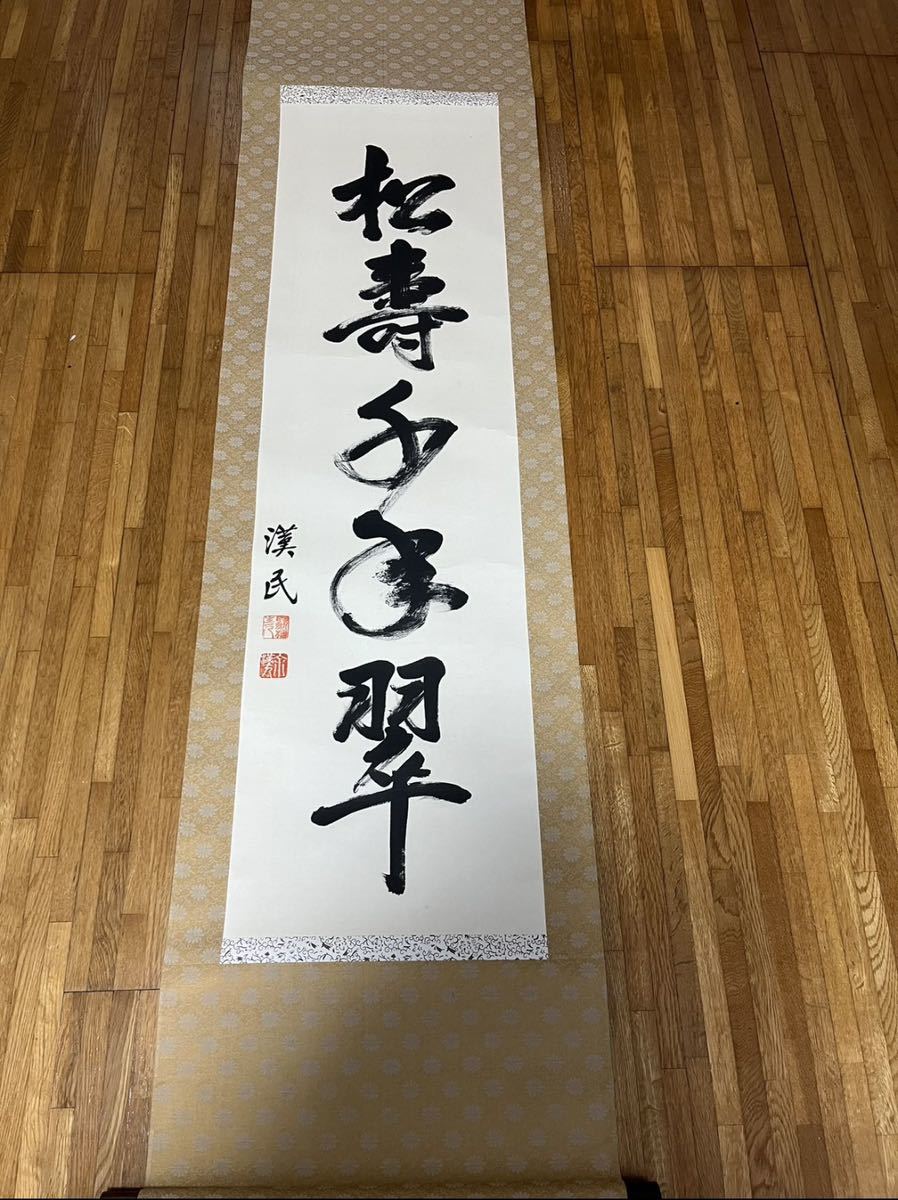 松壽千年翠
漢民